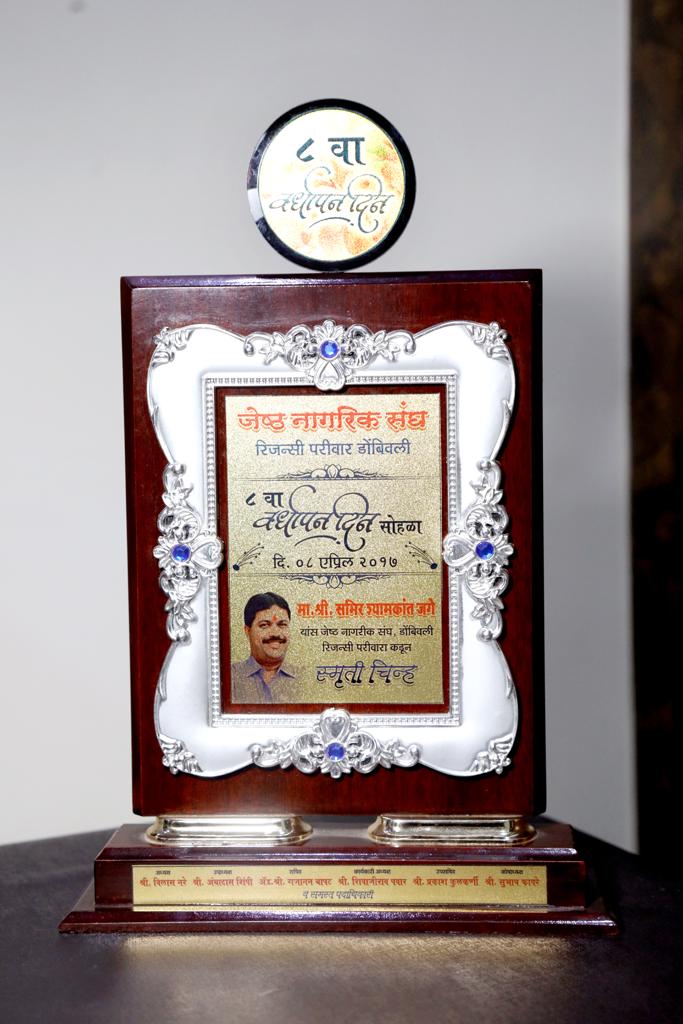 ८ वा
वर्धापन दिन
जेष्ठ नागरिक संघ
रिजन्सी परीवार डोंबिवली
८ वा
वर्धापन दिन सोहळा
दि. ०८ एप्रिल २०१७
मा. श्री. समिर श्यामकांत जगे
यांस जेष्ठ नागरीक संघ, डोंबिवली
रिजन्सी परीवारा कडून
स्मृती चिन्ह
अध्यक्ष उपाध्यक्ष सचिव कार्यकारी अध्यक्ष उपसचिव कोषाध्यक्ष
श्री. विलास नरे श्री. अंबादास शिंपी ॲड. श्री. गजानन बापट श्री. शिवाजीराव पवार श्री. प्रकाश कुलकर्णी श्री. सुभाष कापरे
व समस्त पदाधिकारी